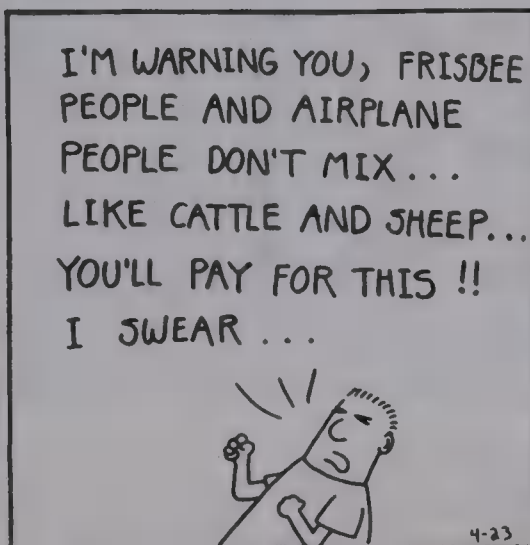 I'M WARNING YOU, FRISBEE
PEOPLE AND AIRPLANE
PEOPLE DON'T MIX...
LIKE CATTLE AND SHEEP...
YOU'LL PAY FOR THIS !!
I SWEAR ...
4-23